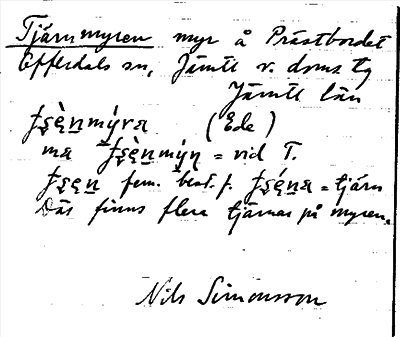 Tjärnmyren myr å Prästbordet
Offerdals sn, Jämtl v. doms tg
Jämtl län
(Ede)
ma = vid T.
fem. best. f. = tjärn
Där finns flera tjärnar på myren.
Nils Simonsson